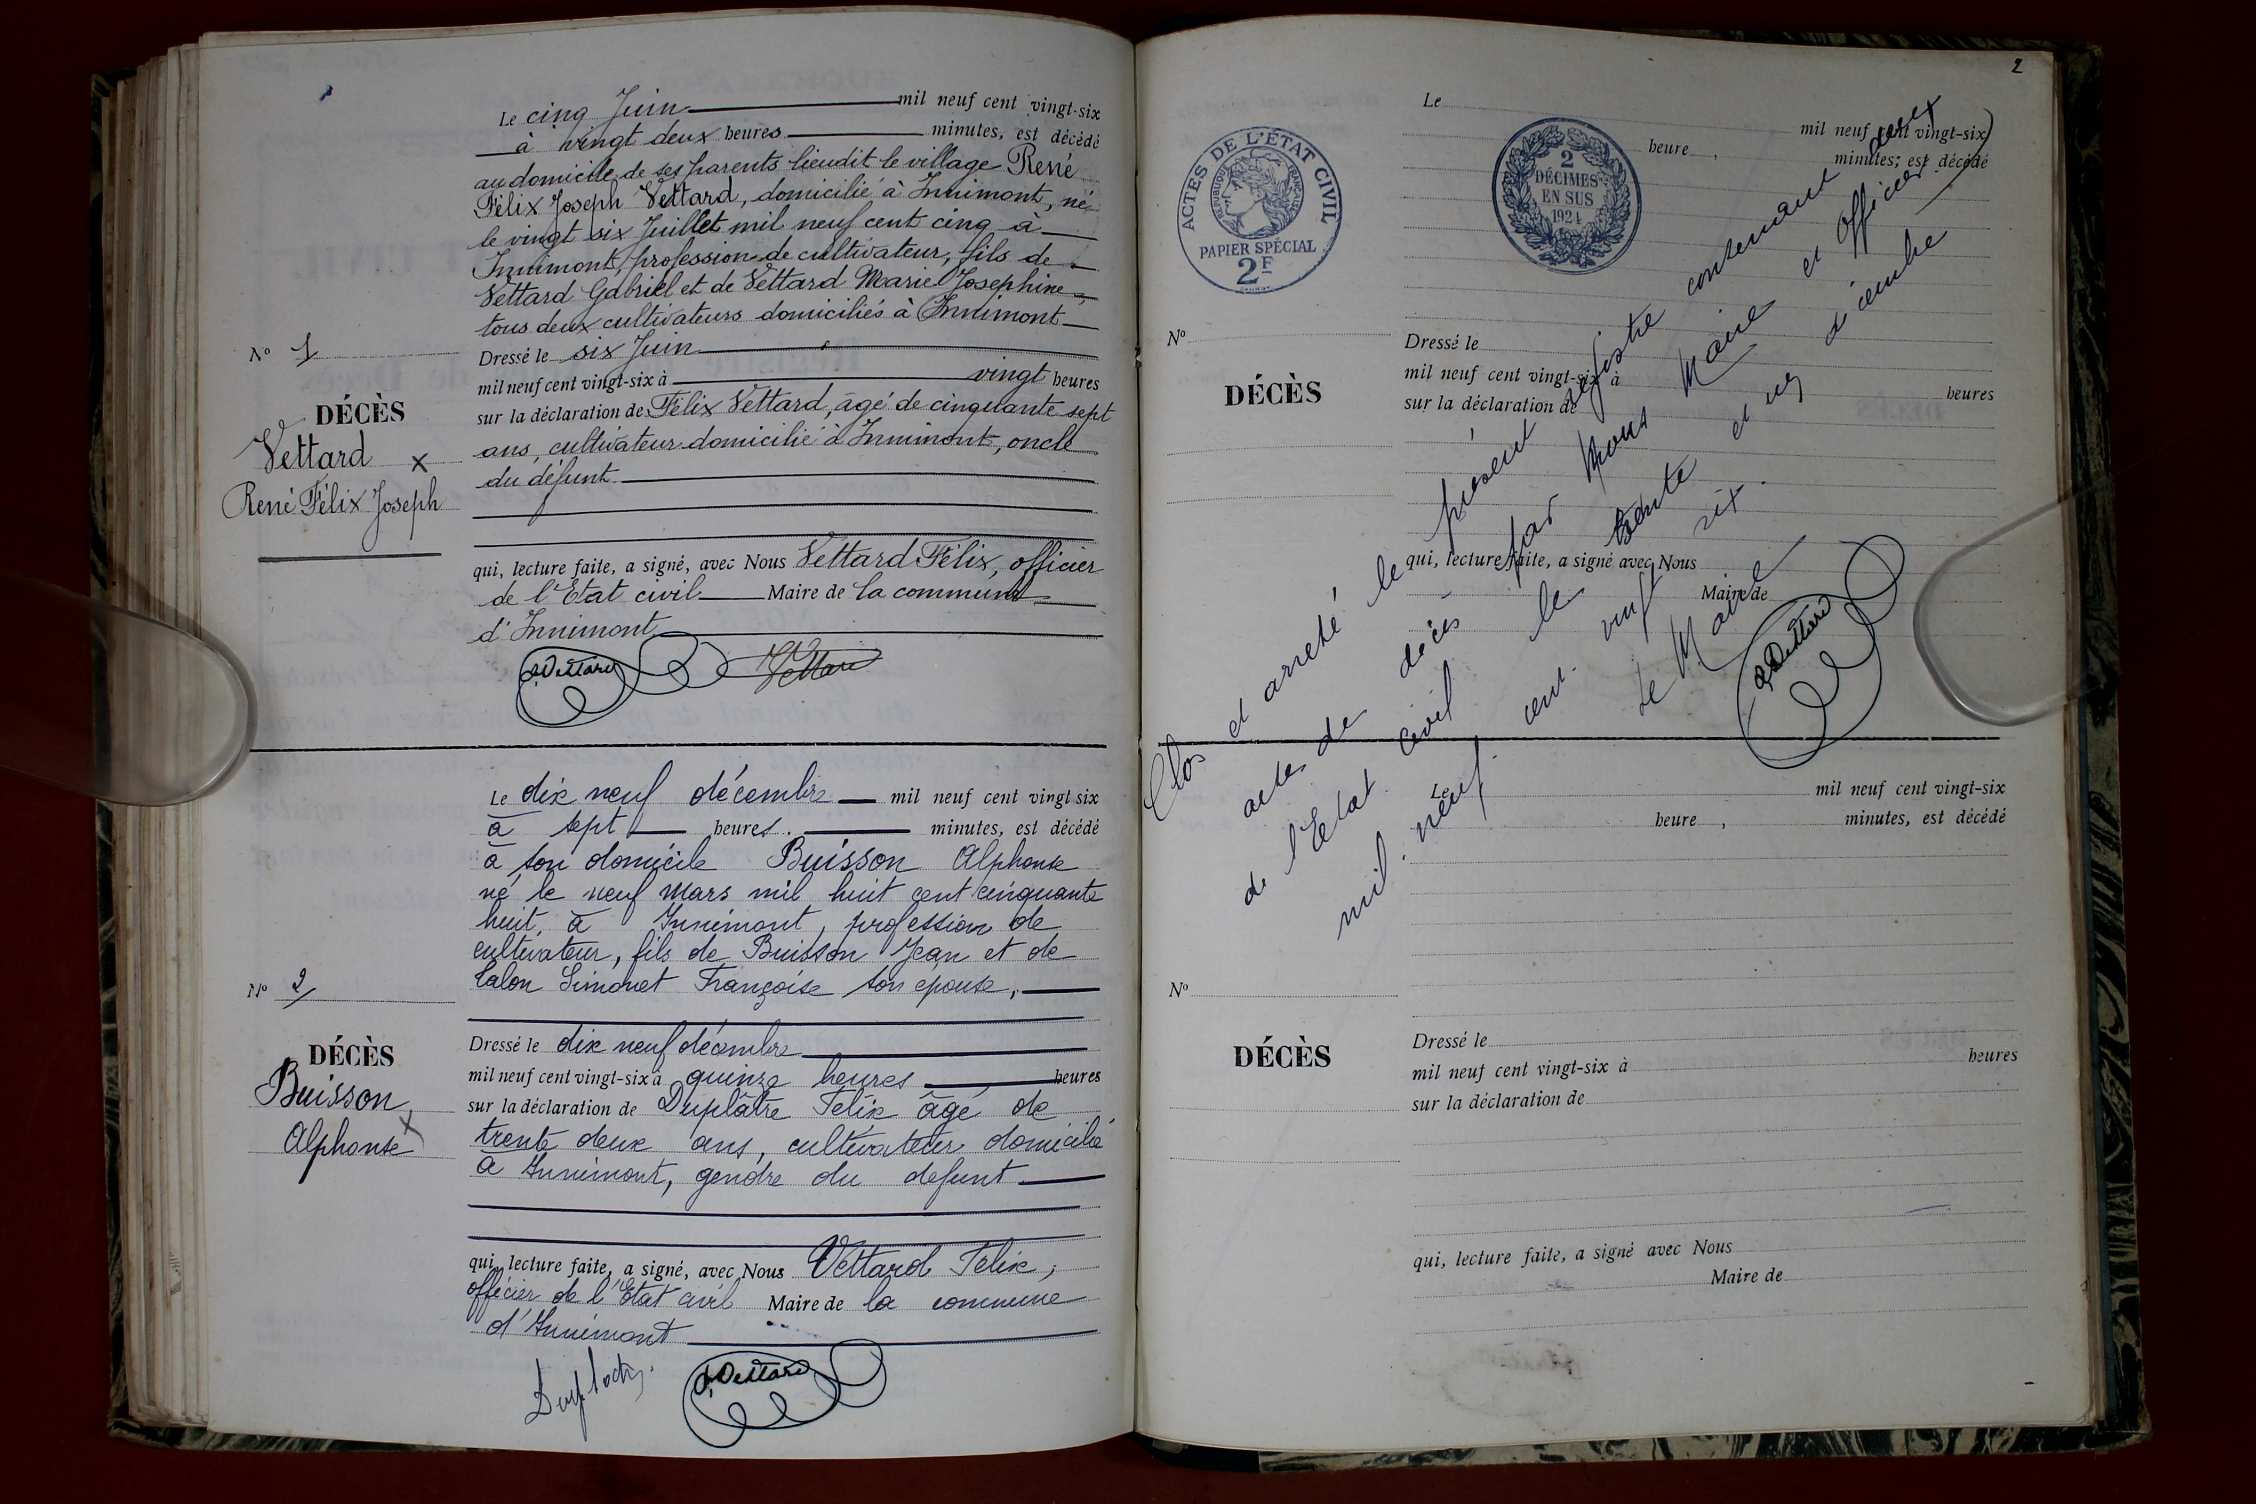 Le cinq Juin mil neuf cent vingt-six
à vingt deux heures minutes, est décédé
au domicile de ses parents lieudit le village René
Félix Joseph Vettard, domicilié à Innimont, né
le vingt six Juillet mil neuf cent cinq à
Innimont, profession de cultivateur, fils de
Vettard Gabriel et de Vettard Marie Josephine,
tous deux cultivateurs domiciliés à Innimont
Nº 1
DÉCÈS
Vettard x
René Félix Joseph
Dressé le six Juin
mil neuf cent vingt-six à vingt heures
sur la déclaration de Félix Vettard, âgé de cinquante sept
ans, cultivateur domicilié à Innimont, oncle
du défunt.
qui, lecture faite, a signé, avec Nous Vettard Félix, officier
de l'Etat civil Maire de la commune
d'Innimont
Vettard Vettard
Le dix neuf décembre mil neuf cent vingt six
à sept heures. minutes, est décédé
à son domicile Buisson Alphonse
né le neuf Mars mil huit cent cinquante
huit, à Innimont, profession de
cultivateur, fils de Buisson Jean et de
Simonet Françoise son épouse,
Nº 2
DÉCÈS
Buisson
Alphonse x
Dressé le dix neuf décembre
mil neuf cent vingt-six à quinze heures heures
sur la déclaration de Duplâtre Félix âgé de
trente deux ans, cultivateur domicilié
à Innimont, gendre du defunt
qui, lecture faite, a signé, avec Nous Vettard Félix,
officier de l'Etat civil Maire de la commune
d'Innimont
Vettard
2
ACTES DE L'ÉTAT CIVIL
RÉPUBLIQUE FRANÇAISE
PAPIER SPÉCIAL
2F
2
DÉCIMES
EN SUS
1924
Le mil neuf cent vingt-six
heure , minutes, est décédé
Nº
DÉCÈS
Dressé le
mil neuf cent vingt-six à heures
sur la déclaration de
qui, lecture faite, a signé avec Nous
Maire de
Clos et arreté le présent registre contenant deux
actes de décès par Nous Maire et Officier
de l'Etat Civil le trente et un décembre
mil neuf cent vingt six.
Le Maire
Vettard
Le mil neuf cent vingt-six
heure , minutes, est décédé
Nº
DÉCÈS
Dressé le
mil neuf cent vingt-six à heures
sur la déclaration de
qui, lecture faite, a signé avec Nous
Maire de